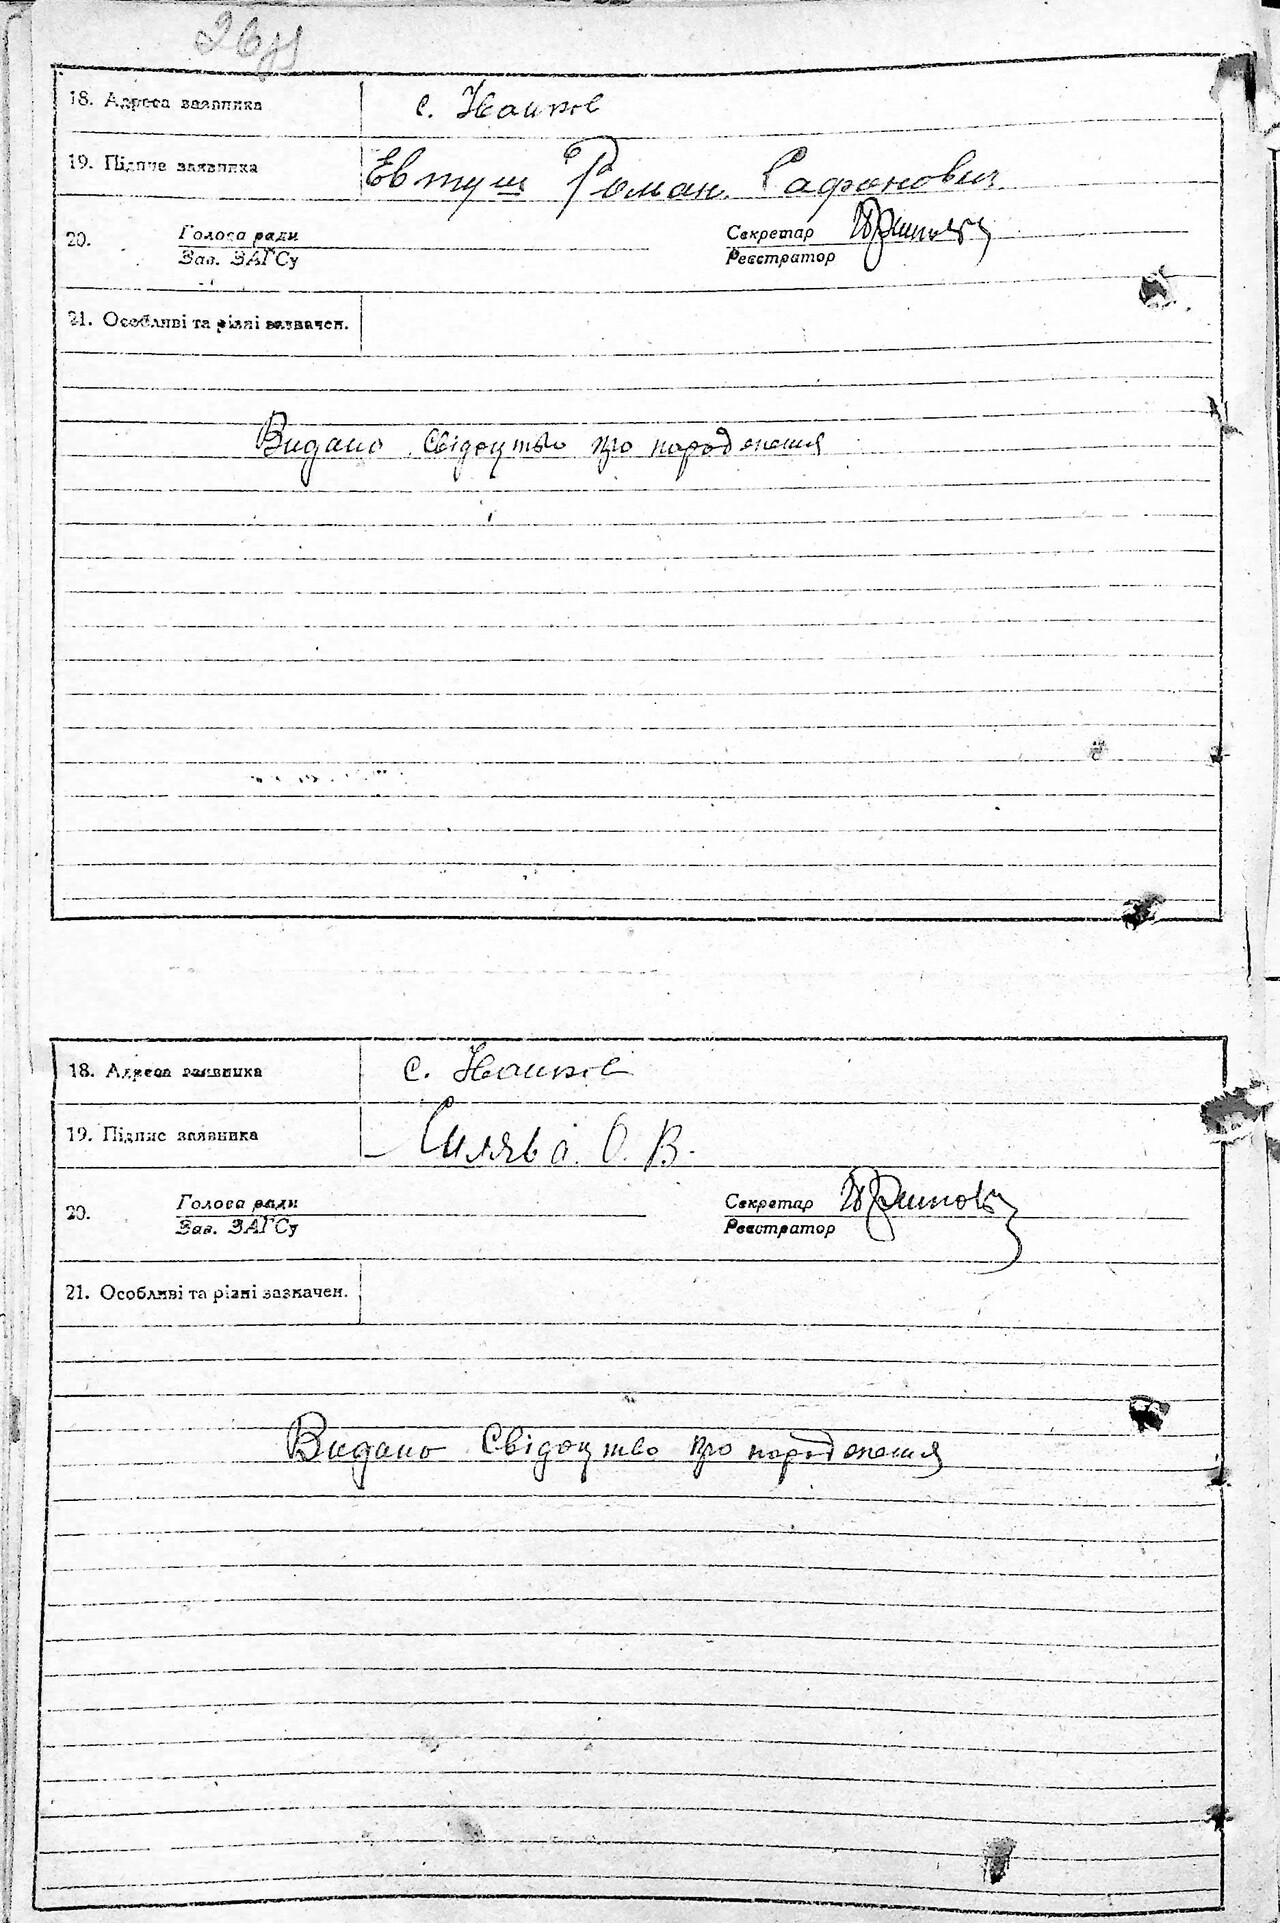 18. Адреса заявника с. Іваньків
19. Підпис заявника Евтуш Роман Сафонович
20. Голова ради Секретар
Зав. ЗАГСу Реєстратор
21. Особливі та різні зазначен.
Видано Свідоцтво про народження
18. Адреса заявника с.
19. Підпис заявника Силява О. В.
20. Голова ради Секретар
Зав. ЗАГСу Реєстратор
21. Особливі та різні зазначен.
Видано Свідоцтво про народження